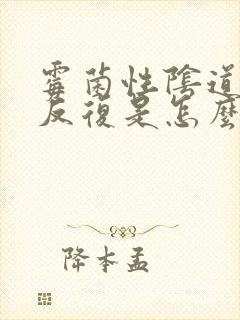 霉菌性陰道
反復是怎麼
降本孟